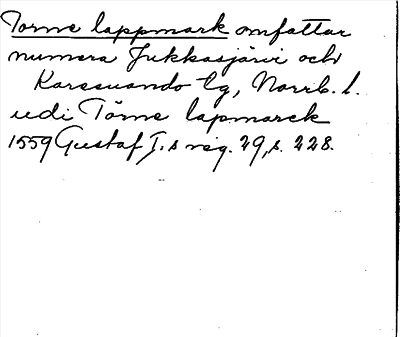 Torne lappmark omfattar
numera Jukkasjärvi och
Karesuando lg, Norrb. l.
udi Törne lapmarck
1559 Gustaf I.s reg. 29, s. 228.